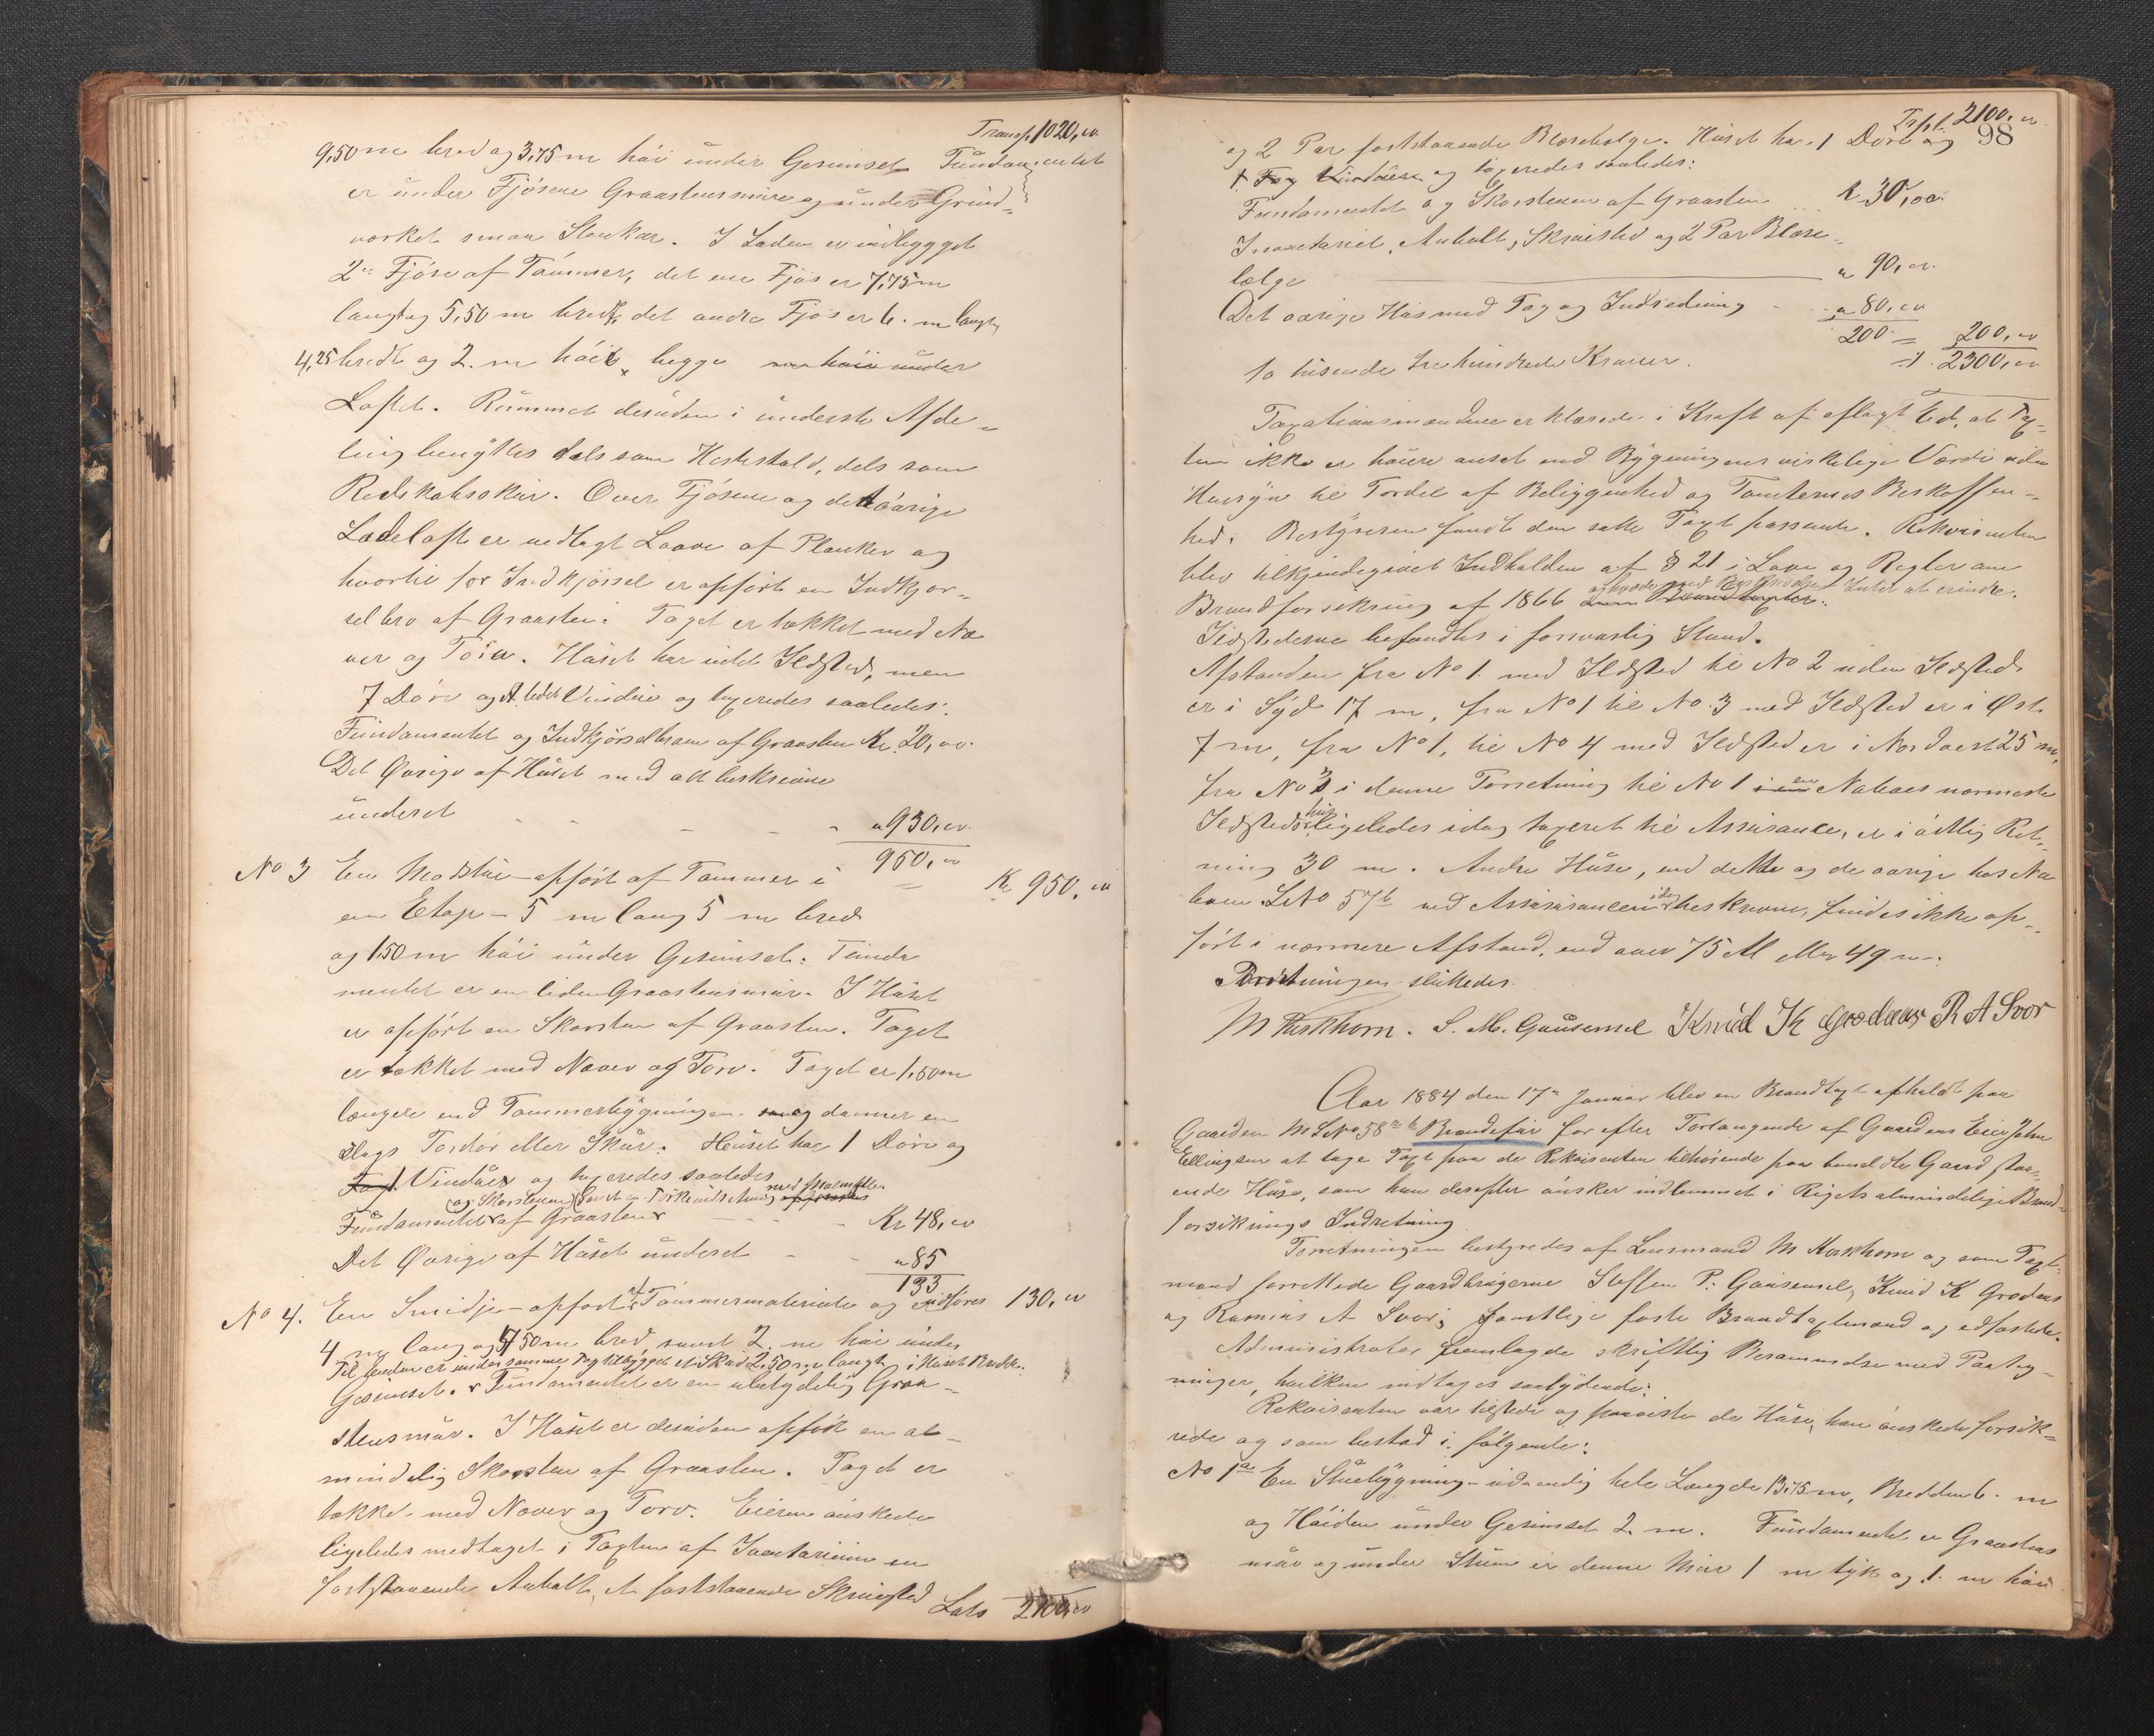 Transp. 1020,00
9,50 m bred og 3,75 m høi under Gesimset. Fundamentet
er under Fjøsene Graastensmure og under Grind-
værket smaa Stenkar. I Laden er indbygget
2de Fjøse af Tømmer, det ene Fjøs er 7,75 m
langt og 5,50 m bredt, det andre Fjøs er 6. m langt,
4,25 bredt og 2. m høit, begge under
Loftet. Rummet desuden i underste Afde-
ling benyttes dels som Hestestald, dels som
Redskabsskur. Over Fjøsene og det øvrige
Ladeloft er nedlagt Laave af Planker og
hvortil for Indkjørsel er opført en Indkjør-
selbro af Graasten. Taget er tækket med Næ
ver og Torv. Huset har intet Ildsted, men
7 Døre og et lidet Vindue og taxeredes saaledes:
Fundamentet og Indkjørselbroen af Graasten Kr. 20,00.
Det Øvrige af Huset med alt beskrevne
underet - - - - " 930,00
950,00
Kr 950,00
No 3 En Madstue - opført af Tømmer i
een Etage - 5 m lang 5 m bred
og 1,50 m høi under Gesimset. Funda
mentet er en liden Graastensmur. I Huset
er opført en Skorsten af Graasten. Taget
er tækket med Næver og Torv. Taget er 1,50 m
længere end Tømmerbygningen og danner en
Slags Fordør eller Skur. Huset har 1 Dør og
1 Vindue og taxeredes saaledes
og Skorstenen
Fundamentet af Graasten - - - Kr 48,00
Det Øvrige af Huset underet - - " 85
133
No 4. En Smidje - opført af Tømmermateriale og udføres 130,00
4 m lang og 4,50 m bred, samt 2. m høi under
Til denne er under samme Tag tilbygget et Skur 2,50 m langt, i Huset Bredde.
Gesimset. Fundamentet er en ubetydelig Graa-
stensmur. I Huset er desuden opført en al-
mindelig Skorsten af Graasten. Taget er
tækket med Næver og Torv. Eieren ønskede
ligeledes medtaget i Taxten af Inventarium en
faststaaende Ambolt, et faststaaende Skruested
Lats 2100,00
Trpt. 2100,00
98
og 2 Par faststaaende Blæsebælge. Huset har 1 Dør og
1 Fag Vinduer og taxeredes saaledes:
Fundamentet og Skorstenen af Graasten ... K 30,00
Inventariet, Ambolt, Skruested og 2 Par Blæse-
bælge " 90,00.
Det øvrige Hus med Tag og Indredning - " 80,00
200 = 200,00
2300,00
to tusende tre hundrede Kroner.
Taxationsmændene erklærede i Kraft af aflagt Ed, at Tax-
ten ikke er høiere ansat end Bygningens virkelige Værdi uden
Hensyn til Fordel af Beliggenhed og Tomternes Beskaffen-
hed. Bestyreren fandt den satte Taxt passende. Rekvirenten
blev tilkjendegivet Indholdet af § 21 i Lov og Regler om
Brandforsikring af 1866 og havde Intet at erindre.
Ildstederne befandtes i forsvarlig Stand.
Afstanden fra No 1. med Ildsted til No 2 uden Ildsted
er i Syd 17 m, fra No 1 til No. 3 med Ildsted er i Øst
7 m, fra No 1, til No 4 med Ildsted er i Nordvest 25 m,
fra No 3 i denne Forretning til No 1 en Naboes nærmeste
Ildsted hus ligeledes idag taxeret til Assurance, er i østlig Ret-
ning 30 m. Andre Huse, end dette og de øvrige hos Na
boen LNo 57b ved Assurancen idag beskrevne, findes ikke op-
ført i nærmere Afstand, end over 75 Al eller 49 m.
Forretningen sluttedes.
M Karkhorn. S. M. Gausemel Knud K Grodaas R A Svor
Aar 1884 den 17de Januar blev en Brandtaxt afholdt paa
Gaarden M LNo 58 a b Brendefur for efter Forlangende af Gaardens Eier John
Ellingsen at tage Taxt paa de Rekvirenten tilhørende paa bemeldte Gaard staa-
ende Huse, som han derefter ønsker indlemmet i Rigets almindelige Brand-
forsikrings Indretning.
Forretningen bestyredes af Lensmand M Karkhorn og som Taxt-
mænd forrettede Gaardbrugerne Steffen P. Gausemel, Knud K Grodaas
og Rasmus A Svor; samtlige faste Brandtaxtmænd og edfæstede.
Administrator fremlagde skriftlig Berammelse med Paateg-
ninger, hvilken indtages saalydende:
Rekvirenten var tilstede og paaviste de Huse, han ønskede forsik-
rede og som bestod i følgende:
No 1a En Stuebygning - udvendig hele Længde 13,75 m, Bredden 6. m
og Høiden under Gesimset 2. m. Fundamentet er Graastens
mur og under Stuen er denne Mur 1 m tyk og 1. m høi